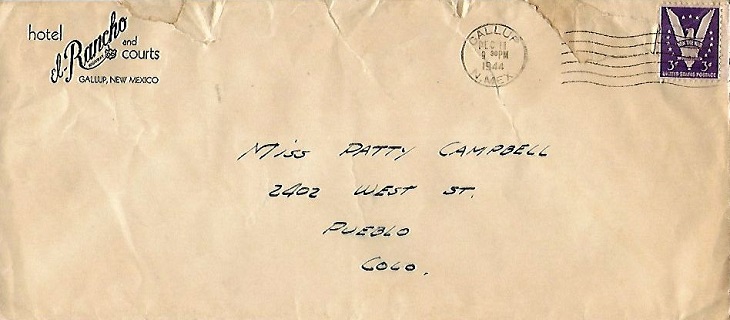 hotel
el Rancho
and
courts
GALLUP, NEW MEXICO
GALLUP
DEC 11
9 30PM
1944
N.MEX.
WIN THE WAR
3¢ 3¢
UNITED STATES POSTAGE
MISS PATTY CAMPBELL
2402 WEST ST.
PUEBLO
COLO.